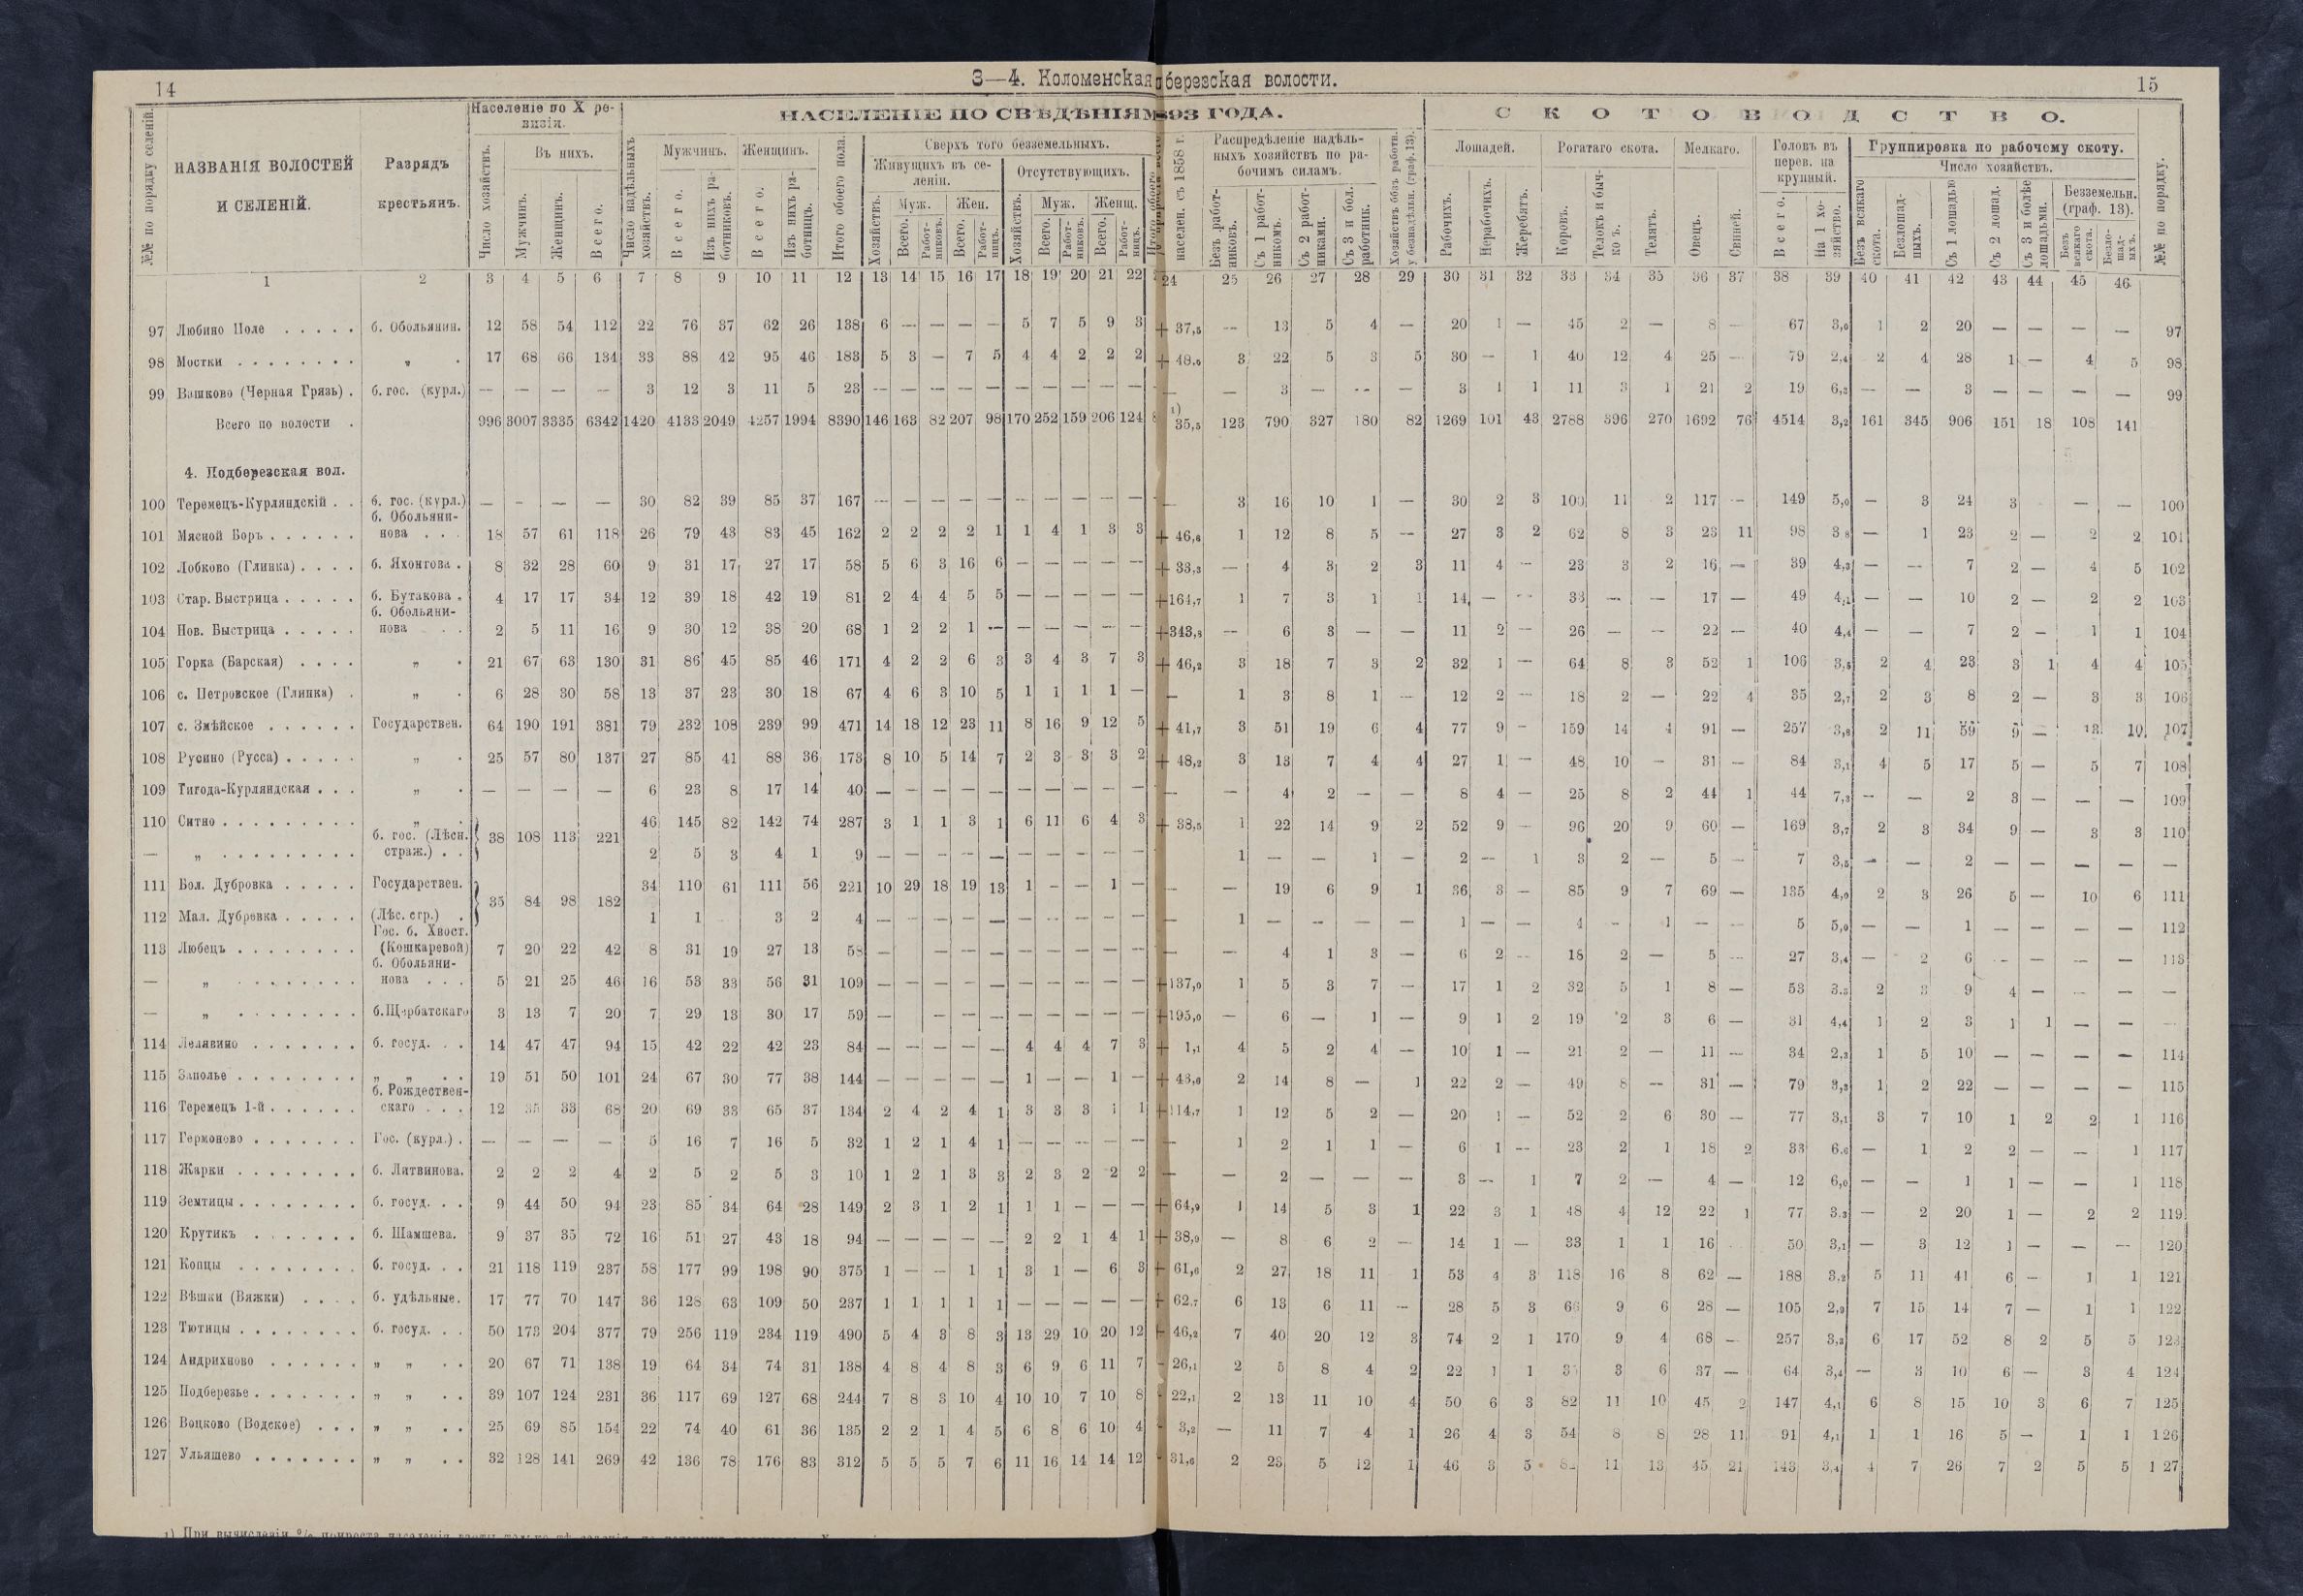 14
3—4. Коломенская
березская волости.
15
НАСЕЛЕНІЕ ПО СВѢДѢНІЯМ
93 ГОДА.
СКОТОВОДСТВО.
№№ по порядку селеній.
НАЗВАНІЯ ВОЛОСТЕЙ И СЕЛЕНІЙ.
Разрядъ крестьянъ.
Населеніе по X ревизіи.
Число хозяйствъ.
Въ нихъ.
Мужчинъ.
Женщинъ.
Всего.
Число надѣльныхъ хозяйствъ.
Мужчинъ.
Всего.
Изъ нихъ работниковъ.
Женщинъ.
Всего.
Изъ нихъ работницъ.
Итого обоего пола.
Сверхъ того безземельныхъ.
Живущихъ въ селеніи.
Хозяйствъ.
Муж.
Всего.
Работниковъ.
Жен.
Всего.
Работницъ.
Отсутствующихъ.
Хозяйствъ.
Муж.
Всего.
Работниковъ.
Женщ.
Всего.
Работницъ.
населен. съ 1858 г.
Распредѣленіе надѣльныхъ хозяйствъ по рабочимъ силамъ.
Безъ работниковъ.
Съ 1 работникомъ.
Съ 2 работниками.
Съ 3 и бол. работник.
Лошадей.
Рабочихъ.
Нерабочихъ.
Жеребятъ.
Рогатаго скота.
Коровъ.
Телокъ и бычковъ.
Телятъ.
Мелкаго.
Овецъ.
Свиней.
Головъ въ перев. на крупный.
Всего.
На 1 хозяйство.
Группировка по рабочему скоту.
Число хозяйствъ.
Безъ всякаго скота.
Безлошадныхъ.
Съ 1 лошадью
Съ 2 лошад.
Съ 3 и болѣе лошадьми.
Безземельн. (граф. 13).
Безъ всякаго скота.
Безлошадныхъ.
№№ по порядку.
1 2 3 4 5 6 7 8 9 10 11 12 13 14 15 16 17 18 19 20 21 22 24 25 26 27 28 29 30 31 32 33 34 35 36 37 38 39 40 41 42 43 44 45 46
97 Любино Поле . . . . . б. Обольянин. 12 58 54 112 22 76 37 62 26 138 6 — — — — 5 7 5 9 3 + 37,5 — 13 5 4 — 20 1 — 45 2 — 8 — 67 3,0 1 2 20 — — — — 97
98 Мостки . . . . . . . . „ . 17 68 66 134 33 88 42 95 46 183 5 3 — 7 5 4 4 2 2 2 + 48,0 3 22 5 3 5 30 — 1 40 12 4 25 — 79 2,4 2 4 28 1 — 4 5 98
99 Вашково (Черная Грязь) . б. гос. (курл.) — — — — 3 12 3 11 5 23 — — — — — — — — — — — — 3 — — — 3 1 1 11 3 1 21 2 19 6,3 — — 3 — — — — 99
Всего по волости . 996 3007 3335 6342 1420 4133 2049 4257 1994 8390 146 163 82 207 98 170 252 159 206 124 ¹) 35,5 123 790 327 180 82 1269 101 43 2788 396 270 1692 76 4514 3,2 161 345 906 151 18 108 141
4. Подберезская вол.
100 Теремецъ-Курляндскій . . б. гос. (курл.) — — — — 30 82 39 85 37 167 — — — — — — — — — — — 3 16 10 1 — 30 2 3 100 11 2 117 — 149 5,0 — 3 24 3 — — 100
101 Мясной Боръ . . . . . . б. Обольянинова . . . 18 57 61 118 26 79 43 83 45 162 2 2 2 2 1 1 4 1 3 3 + 46,6 1 12 8 5 — 27 3 2 62 8 3 23 11 98 3,8 — 1 23 2 — 2 2 101
102 Лобково (Глинка) . . . . б. Яхонтова . 8 32 28 60 9 31 17 27 17 58 5 6 3 16 6 — — — — — + 33,3 — 4 3 2 3 11 4 — 23 3 2 16 — 39 4,3 — — 7 2 — 4 5 102
103 Стар. Быстрица . . . . . б. Бутакова . 4 17 17 34 12 39 18 42 19 81 2 4 4 5 5 — — — — — +164,7 1 7 3 1 1 14 — — 33 — — 17 — 49 4,1 — — 10 2 — 2 2 103
104 Нов. Быстрица . . . . . б. Обольянинова . . 2 5 11 16 9 30 12 38 20 68 1 2 2 1 — — — — — — +343,8 — 6 3 — — 11 2 — 26 — — 22 — 40 4,4 — — 7 2 — 1 1 104
105 Горка (Барская) . . . . „ . 21 67 63 130 31 86 45 85 46 171 4 2 2 6 3 3 4 3 7 3 + 46,2 3 18 7 3 2 32 1 — 64 8 3 52 1 106 3,8 2 4 23 3 1 4 4 105
106 с. Петровское (Глинка) . „ . 6 28 30 58 13 37 23 30 18 67 4 6 3 10 5 1 1 1 1 — — 1 3 8 1 — 12 2 — 18 2 — 22 4 35 2,7 2 3 8 2 — 3 3 106
107 с. Змѣйское . . . . . . Государствен. 64 190 191 381 79 232 108 239 99 471 14 18 12 23 11 8 16 9 12 5 + 41,7 3 51 19 6 4 77 9 — 159 14 4 91 — 257 3,8 2 11 59 9 — 13 10 107
108 Русино (Русса) . . . . . „ . 25 57 80 137 27 85 41 88 36 173 8 10 5 14 7 2 3 3 3 2 + 48,2 3 13 7 4 4 27 1 — 48 10 — 31 — 84 3,1 4 5 17 5 — 5 7 108
109 Тигода-Курляндская . . . „ . — — — — 6 23 8 17 14 40 — — — — — — — — — — — 4 2 — — 8 4 — 25 8 2 44 1 44 7,3 — — 2 3 — — — 109
110 Ситно . . . . . . . . . „ . 38 108 113 221 46 145 82 142 74 287 3 1 1 3 1 6 11 6 4 3 + 38,5 1 22 14 9 2 52 9 — 96 20 9 60 — 169 3,7 2 3 34 9 — 3 3 110
— „ . . . . . . . . . б. гос. (Лѣсн. страж.) . . 2 5 3 4 1 9 — — — — — — — — — — 1 — — 1 — 2 — 1 3 2 — 5 — 7 3,5 — — 2 — — — — —
111 Бол. Дубровка . . . . . Государствен. 35 84 98 182 34 110 61 111 56 221 10 29 18 19 13 1 — — 1 — — — 19 6 9 1 36 3 — 85 9 7 69 — 135 4,0 2 3 26 5 — 10 6 111
112 Мал. Дубровка . . . . . (Лѣс. стр.) . 1 1 3 2 4 — — — — — — — — — — 1 — — — — 1 — — 4 — 1 — — 5 5,0 — — 1 — — — — 112
113 Любецъ . . . . . . . . Гос. б. Хвост. (Кошкаревой) 7 20 22 42 8 31 19 27 13 58 — — — — — — — — — — — — 4 1 3 — 6 2 — 18 2 — 5 — 27 3,4 — 2 6 — — — — 113
— „ . . . . . . . . б. Обольянинова . . . 5 21 25 46 16 53 33 56 31 109 — — — — — — — — — — +137,0 1 5 3 7 — 17 1 2 32 5 1 8 — 53 3,3 2 3 9 4 — — — —
— „ . . . . . . . . б. Щербатскаго 3 13 7 20 7 29 13 30 17 59 — — — — — — — — — +195,0 — 6 — 1 — 9 1 2 19 2 3 6 — 31 4,4 1 2 3 1 1 — — —
114 Лелявино . . . . . . . б. госуд. . . 14 47 47 94 15 42 22 42 23 84 — — — — — 4 4 4 7 3 + 1,1 4 5 2 4 — 10 1 — 21 2 — 11 — 34 2,3 1 5 10 — — — — 114
115 Заполье . . . . . . . . „ „ . . 19 51 50 101 24 67 30 77 38 144 — — — — — 1 — — 1 — + 43,6 2 14 8 — 1 22 2 — 49 8 — 31 — 79 3,3 1 2 22 — — — — 115
116 Теремецъ 1-й . . . . . . б. Рождественскаго . . . 12 35 33 68 20 69 33 65 37 134 2 4 2 4 1 3 3 3 1 1 +114,7 1 12 5 2 — 20 1 — 52 2 6 30 — 77 3,1 3 7 10 1 2 2 1 116
117 Гермоново . . . . . . . Гос. (курл.) . — — — — 5 16 7 16 5 32 1 2 1 4 1 — — — — — — 1 2 1 1 — 6 1 — 23 2 1 18 2 33 6,6 — 1 2 2 — — 1 117
118 Жарки . . . . . . . . б. Литвинова. 2 2 2 4 2 5 2 5 3 10 1 2 1 3 3 2 3 2 2 2 — — 2 — — — 3 — 1 7 2 — 4 — 12 6,0 — — 1 1 — — 1 118
119 Земтицы . . . . . . . . б. госуд. . . 9 44 50 94 23 85 34 64 28 149 2 3 1 2 1 1 1 — — — + 64,9 1 14 5 3 1 22 3 1 48 4 12 22 1 77 3,3 — 2 20 1 — 2 2 119
120 Крутикъ . . . . . . . б. Шамшева. 9 37 35 72 16 51 27 43 18 94 — — — — — 2 2 1 4 1 + 38,9 — 8 6 2 — 14 1 — 33 1 1 16 50 3,1 — 3 12 1 — — — 120
121 Копцы . . . . . . . . б. госуд. . . 21 118 119 237 58 177 99 198 90 375 1 — — 1 1 3 1 — 6 3 + 61,6 2 27 18 11 1 53 4 3 118 16 8 62 — 188 3,2 5 11 41 6 — 1 1 121
122 Вѣшки (Вяжки) . . . . б. удѣльные. 17 77 70 147 36 128 63 109 50 237 1 1 1 1 1 — — — — — + 62,7 6 13 6 11 — 28 5 3 66 9 6 28 — 105 2,9 7 15 14 7 — 1 1 122
123 Тютицы . . . . . . . . б. госуд. . . 50 173 204 377 79 256 119 234 119 490 5 4 3 8 3 13 29 10 20 12 46,2 7 40 20 12 3 74 2 1 170 9 4 68 — 257 3,3 6 17 52 8 2 5 5 123
124 Андрихново . . . . . . „ „ . . 20 67 71 138 19 64 34 74 31 138 4 8 4 8 3 6 9 6 11 7 26,1 2 5 8 4 2 22 1 1 3 6 37 — 64 3,4 — 3 10 6 — 3 4 124
125 Подберезье . . . . . . . „ „ . . 39 107 124 231 36 117 69 127 68 244 7 8 3 10 4 10 10 7 10 8 22,1 2 13 11 10 4 50 6 3 82 11 10 45 2 147 4,1 6 8 15 10 3 6 7 125
126 Воцково (Водское) . . . „ „ . . 25 69 85 154 22 74 40 61 36 135 2 2 1 4 5 6 8 6 10 4 3,2 — 11 7 4 1 26 4 3 54 8 8 28 11 91 4,1 1 1 16 5 — 1 1 126
127 Ульяшево . . . . . . . „ „ . . 32 128 141 269 42 136 78 176 83 312 5 5 5 7 6 11 16 14 14 12 31,6 2 23 5 12 1 46 3 5 11 13 45 21 143 3,4 4 7 26 7 2 5 5 127
¹) При вычисленіи % прироста населенія